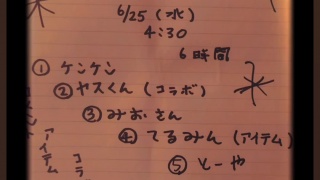 6/25 (水)
4:30
6時間
① ケンケン
② ヤスくん (コラボ)
③ みおさん
④ てるみん (アイテム)
⑤ とーや
アイテム
コラ